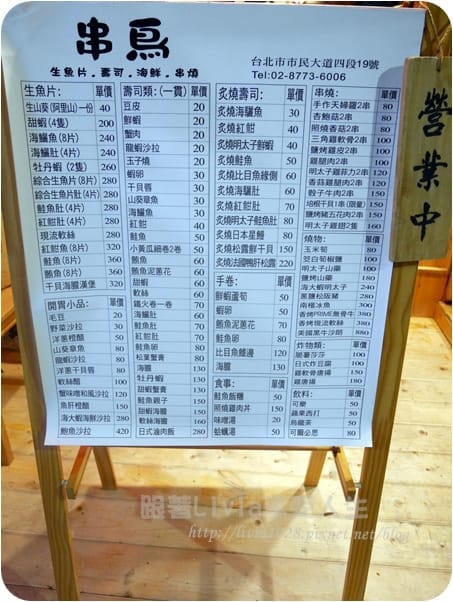 串鳥
生魚片．壽司．海鮮．串燒
台北市市民大道四段19號
Tel:02-8773-6006
營業中
生魚片: 單價
生山葵(阿里山)一份 40
甜蝦(4隻) 200
海鱺魚(8片) 240
海鱺肚(4片) 240
牡丹蝦(2隻) 260
綜合生魚片(6片) 280
綜合生魚片(8片) 280
鮭魚肚(4片) 280
紅魽肚(4片) 280
現流軟絲 280
紅魽魚(8片) 320
鮭魚(8片) 360
鮪魚(8片) 360
干貝海膽漢堡 320
開胃小品: 單價
毛豆 20
野菜沙拉 30
洋蔥橙醋 50
山葵章魚 80
龍蝦沙拉 80
洋蔥干貝唇 80
軟絲醋 100
蟹味噌和風沙拉 120
魚肝橙醋 150
海大蝦海鮮沙拉 280
鮑魚沙拉 420
壽司類:(一貫) 單價
豆皮 20
鮮蝦 20
蟹肉 20
龍蝦沙拉 20
玉子燒 20
蝦卵 30
干貝唇 30
山葵章魚 30
海鱺魚 30
紅魽 40
鮭魚 50
小黃瓜細卷2卷 50
鮪魚 60
鮪魚泥蔥花 60
甜蝦 60
軟絲 60
鐵火卷一卷 70
海鱺肚 60
鮭魚肚 70
紅魽肚 70
鮭魚卵 80
松葉蟹膏 80
海膽 130
牡丹蝦 130
甜蝦蟹膏 130
鮭魚親子 150
甜蝦海膽 150
軟絲海膽 160
日式滷肉飯 280
炙燒壽司: 單價
炙燒海鱺魚 30
炙燒紅魽 40
炙燒明太子鮮蝦 40
炙燒鮭魚 50
炙燒比目魚緣側 60
炙燒海鱺肚 60
炙燒紅魽肚 70
炙燒明太子鮭魚肚 80
炙燒日本星鰻 80
炙燒松露鮮干貝 150
炙燒法國鴨肝松露 220
手卷: 單價
鮮蝦蘆筍 50
蝦卵 50
鮪魚泥蔥花 70
鮭魚卵 100
比目魚鰭邊 120
海膽 120
食事: 單價
鮭魚飯糰 50
照燒雞肉丼 150
味噌湯 20
蛤蠣湯 50
串燒: 單價
手作天婦羅2串 80
杏鮑菇2串 80
照燒香菇2串 80
三角雞軟骨2串 80
鹽烤雞皮2串 80
雞腿肉2串 100
明太子雞菲力2串 120
香蒜雞腿肉2串 120
骰子牛肉2串 150
培根干貝1串(限量) 150
鹽烤豬五花肉2串 150
明太子雞翅2隻 160
燒物: 單價
玉米筍 80
茭白筍椒鹽 100
明太子山藥 100
鹽烤山藥 180
海大蝦明太子 240
蔥鹽松阪豬 280
南極冰魚 300
香烤PRIME無骨牛 380
香烤現流軟絲 380
美國黑牛沙朗 880
炸物類: 單價
脆薯莎莎 100
日式炸豆腐 100
雞軟骨唐揚 150
雞唐揚 180
飲料: 單價
可樂 50
蘋果西打 50
烏龍茶 50
可爾必思 80
跟著Livia享受人生
http://livia1928.pixnet.net/blog